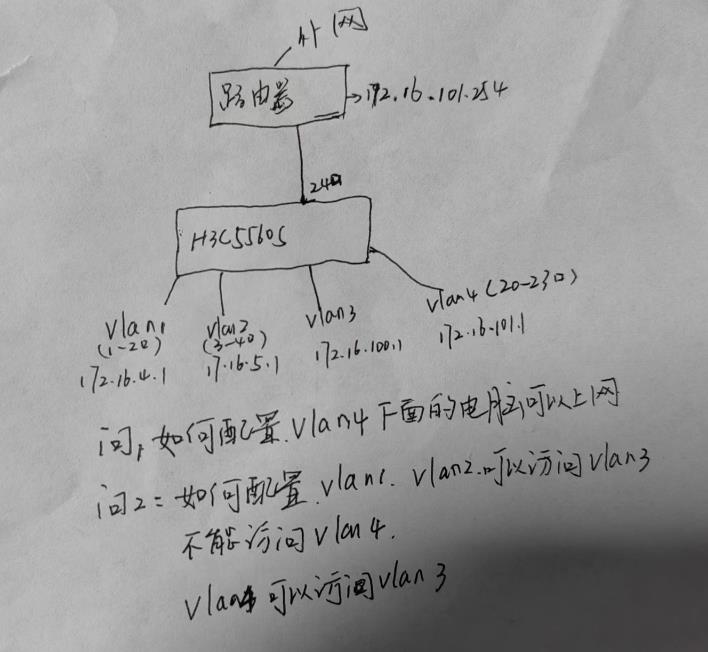 外网
路由器
172.16.101.254
24口
H3C5560S
vlan1
(1-2口)
172.16.4.1
vlan2
(3-4口)
17.16.5.1
vlan3
172.16.100.1
vlan4(20-23口)
172.16.101.1
问1 如何配置.vlan4下面的电脑可以上网
问2:如何配置.vlan1.vlan2.可以访问vlan3
不能访问vlan4.
vlan4可以访问vlan3